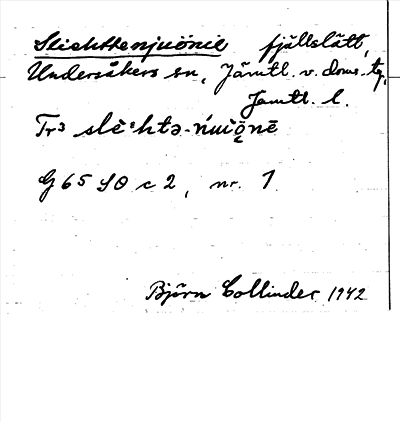 Sliehthenjuönie fjällslätt,
Undersåkers sn, Jämtl. v. doms. tg,
Jämtl. l.
Tr3 slèˈhtə-ńuiǫ̈nē
G 65 SO c 2, nr. 1
Björn Collinder 1942